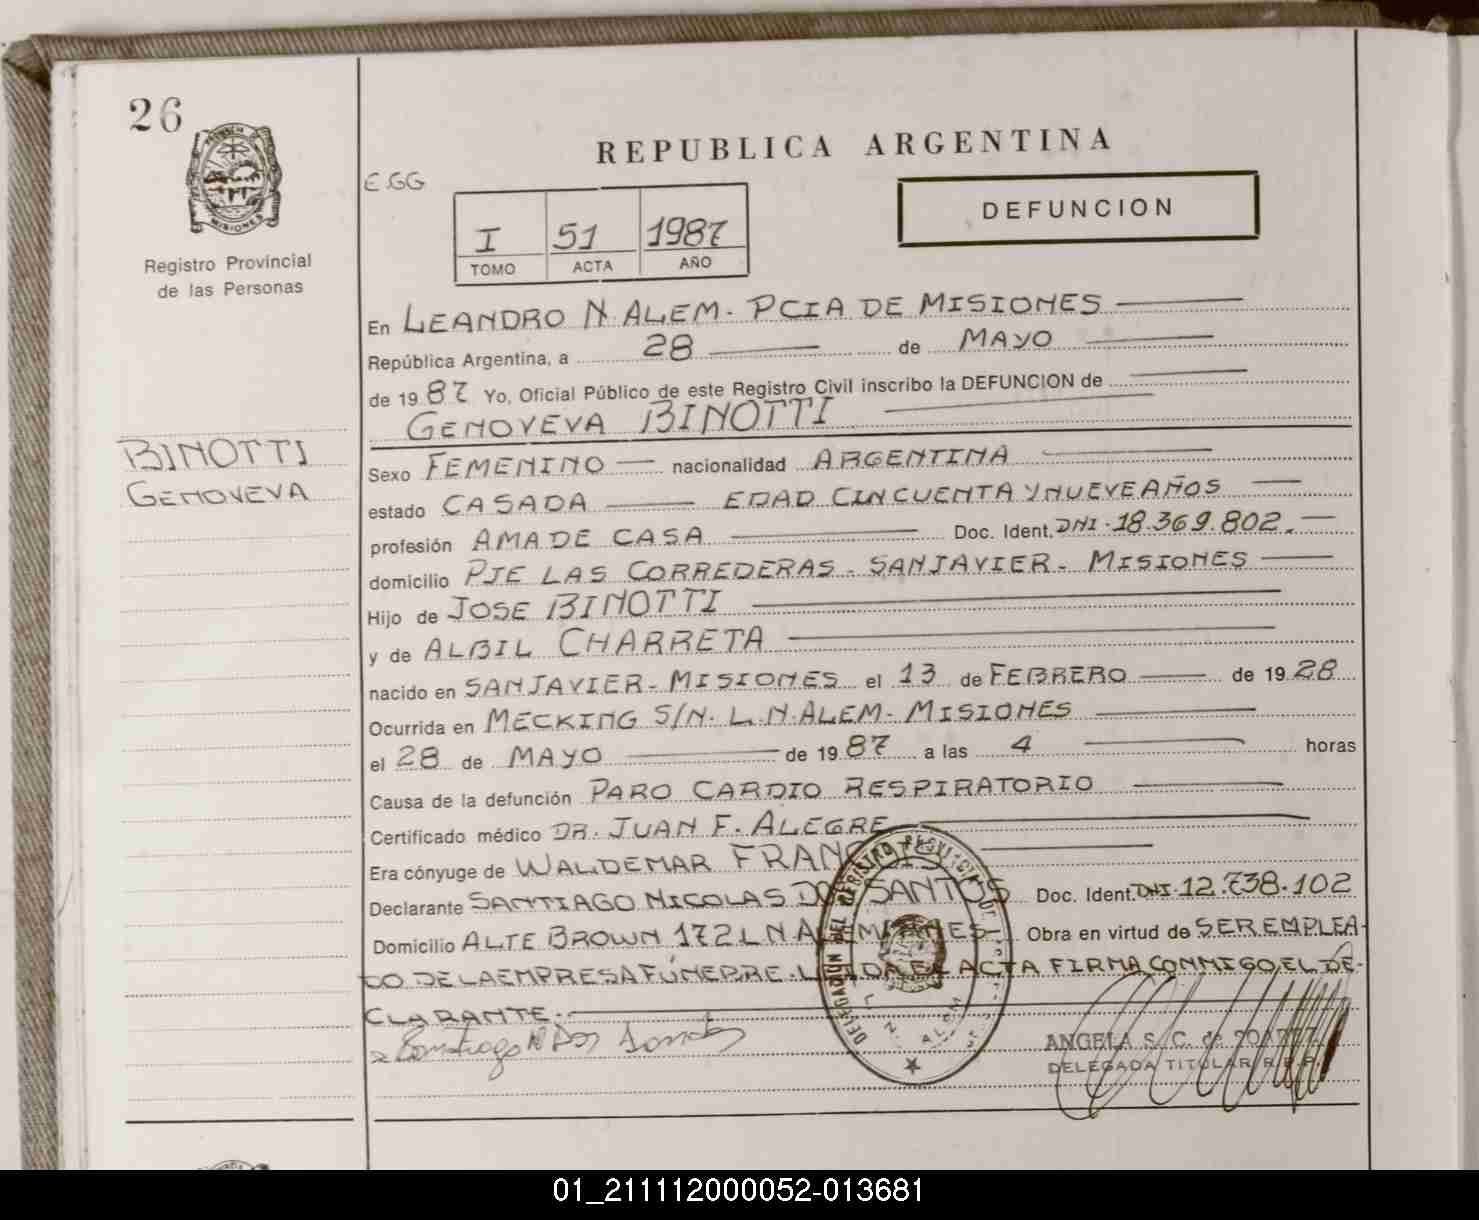 26
PROVINCIA DE
MISIONES
Registro Provincial
de las Personas
REPUBLICA ARGENTINA
E.GG
I 51 1987
TOMO ACTA AÑO
DEFUNCION
En LEANDRO N. ALEM. PCIA DE MISIONES
República Argentina, a 28 de MAYO
de 1987 Yo, Oficial Público de este Registro Civil inscribo la DEFUNCION de
GENOVEVA BINOTTI
BINOTTI
GENOVEVA
Sexo FEMENINO nacionalidad ARGENTINA
estado CASADA EDAD CINCUENTA Y NUEVE AÑOS
profesión AMA DE CASA Doc. Ident. DNI. 18.369.802.
domicilio PJE LAS CORREDERAS - SAN JAVIER - MISIONES
Hijo de JOSE BINOTTI
y de ALBIL CHARRETA
nacido en SAN JAVIER - MISIONES el 13 de FEBRERO de 1928
Ocurrida en MECKING S/N. L.N. ALEM - MISIONES
el 28 de MAYO de 1987 a las 4 horas
Causa de la defunción PARO CARDIO RESPIRATORIO
Certificado médico DR. JUAN F. ALEGRE
Era cónyuge de WALDEMAR
Declarante SANTIAGO NICOLAS DOS SANTOS Doc. Ident. DNI. 12.738.102
Domicilio ALTE BROWN 172 L N ALEM MIONES Obra en virtud de SER EMPLEA-
DO DE LA EMPRESA FÚNEBRE. LEIDA EL ACTA FIRMA CONMIGO, EL DE-
CLARANTE.
Santiago N Dos Santos
DELEGACION DEL REGISTRO PROVINCIAL
L. N. ALEM
ANGELA S. C. de
DELEGADA TITULAR R.P.P.
01_211112000052-013681